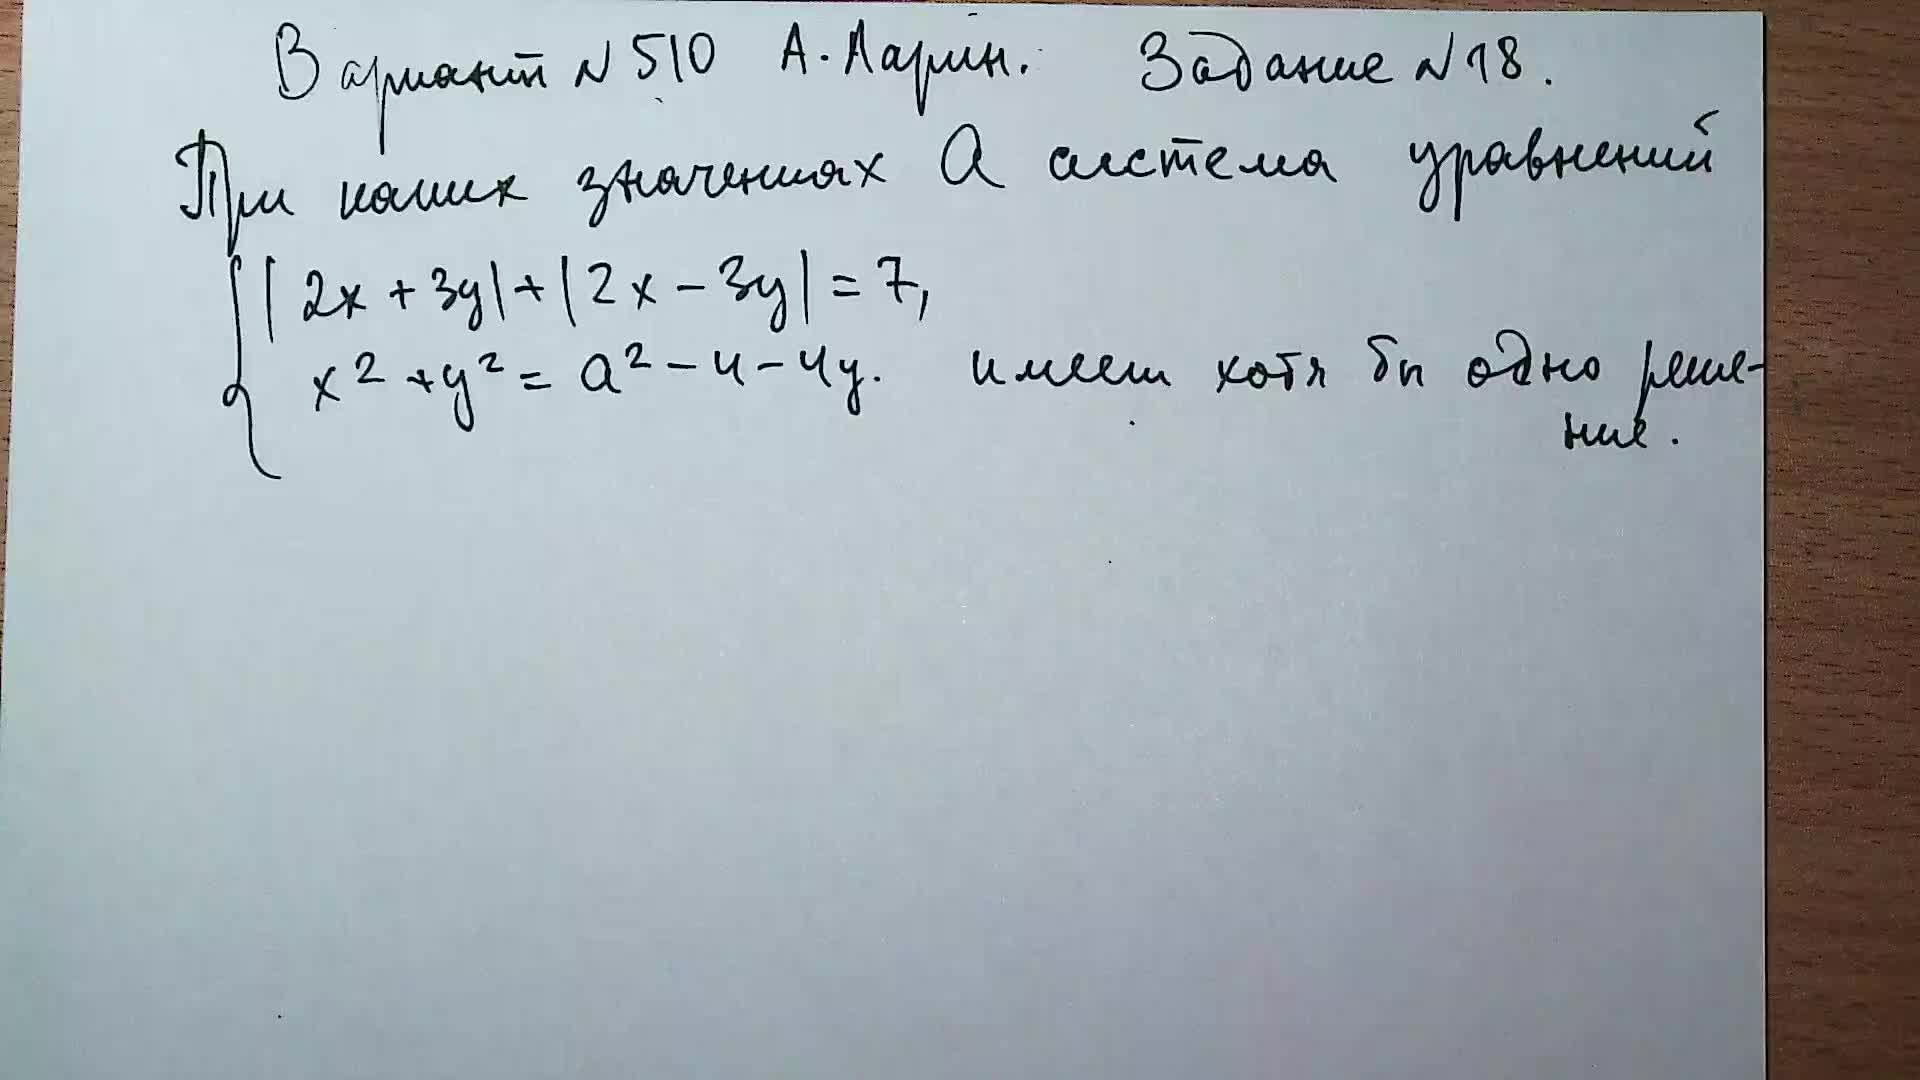 Вариант № 510 А. Ларин. Задание № 18.
При каких значениях a система уравнений
|2x + 3y| + |2x - 3y| = 7,
x² + y² = a² - 4 - 4y. имеет хотя бы одно реше-
ние.